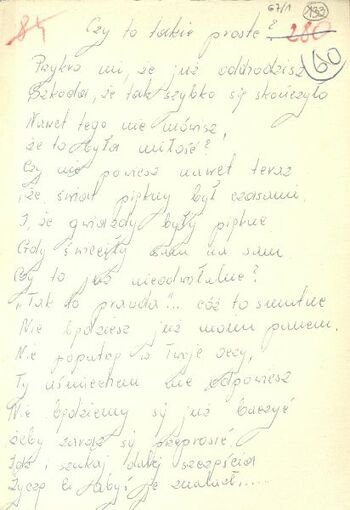 67/1 133
85 Czy to takie proste? 260
60
Przykro mi, że już odchodzisz
Szkoda, że tak szybko się skończyło
Nawet tego nie mówisz,
że to była miłość?
Czy nie powiesz nawet teraz
że świat piękny był czasami.
I, że gwiazdy były piękne
Gdy świeciły sam na sam.
Czy to już nieodwołalne?
"Tak to prawda"... cóż to smutne
Nie będziesz już moim panem.
Nie popatrzę w Twoje oczy,
Ty uśmiechem nie odpowiesz
Nie będziemy się już kłócić
żeby zaraz się przeprosić
Idź i szukaj dalej szczęścia
Życzę Ci żebyś je znalazł.....